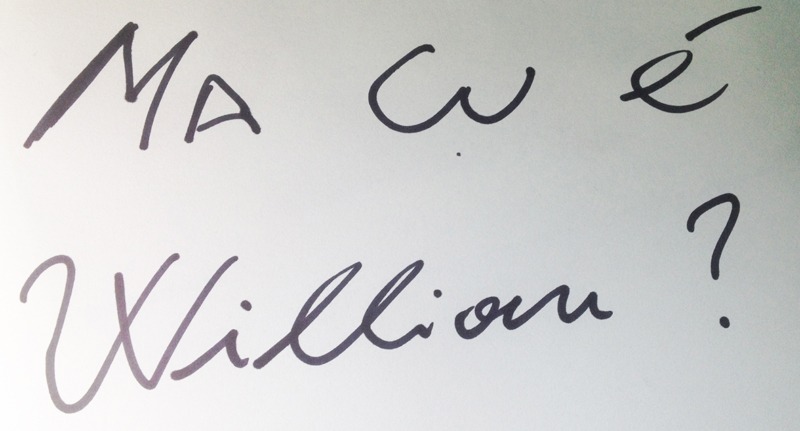 Ma cu é
William?